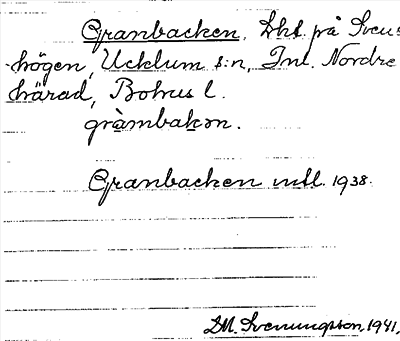 Granbacken, Lht. på Sven-
högen, Ucklum s:n, Inl. Nordre
härad, Bohus l.
gràmbakɔn.
Granbacken mtl. 1938.
D.M. Svenungsson, 1941.